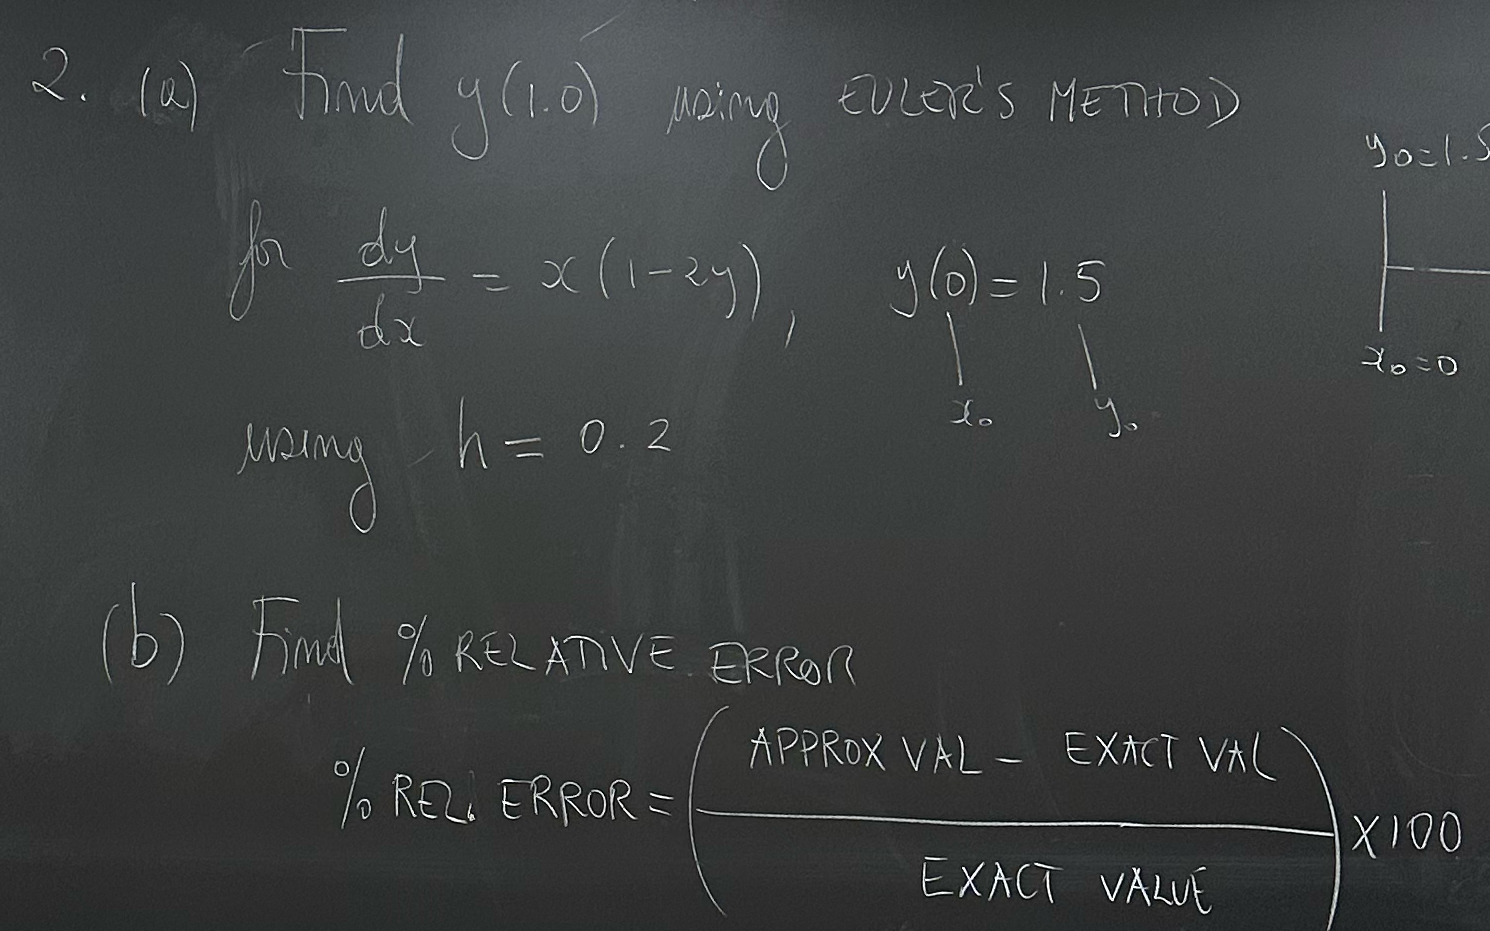 2. (a) Find y(1.0) using EULER'S METHOD
y0=1.5
for dy/dx = x(1-2y), y(0) = 1.5
x0=0
x0 y0
using h = 0.2
(b) Find % RELATIVE ERROR
% REL. ERROR = (APPROX VAL - EXACT VAL / EXACT VALUE) X100